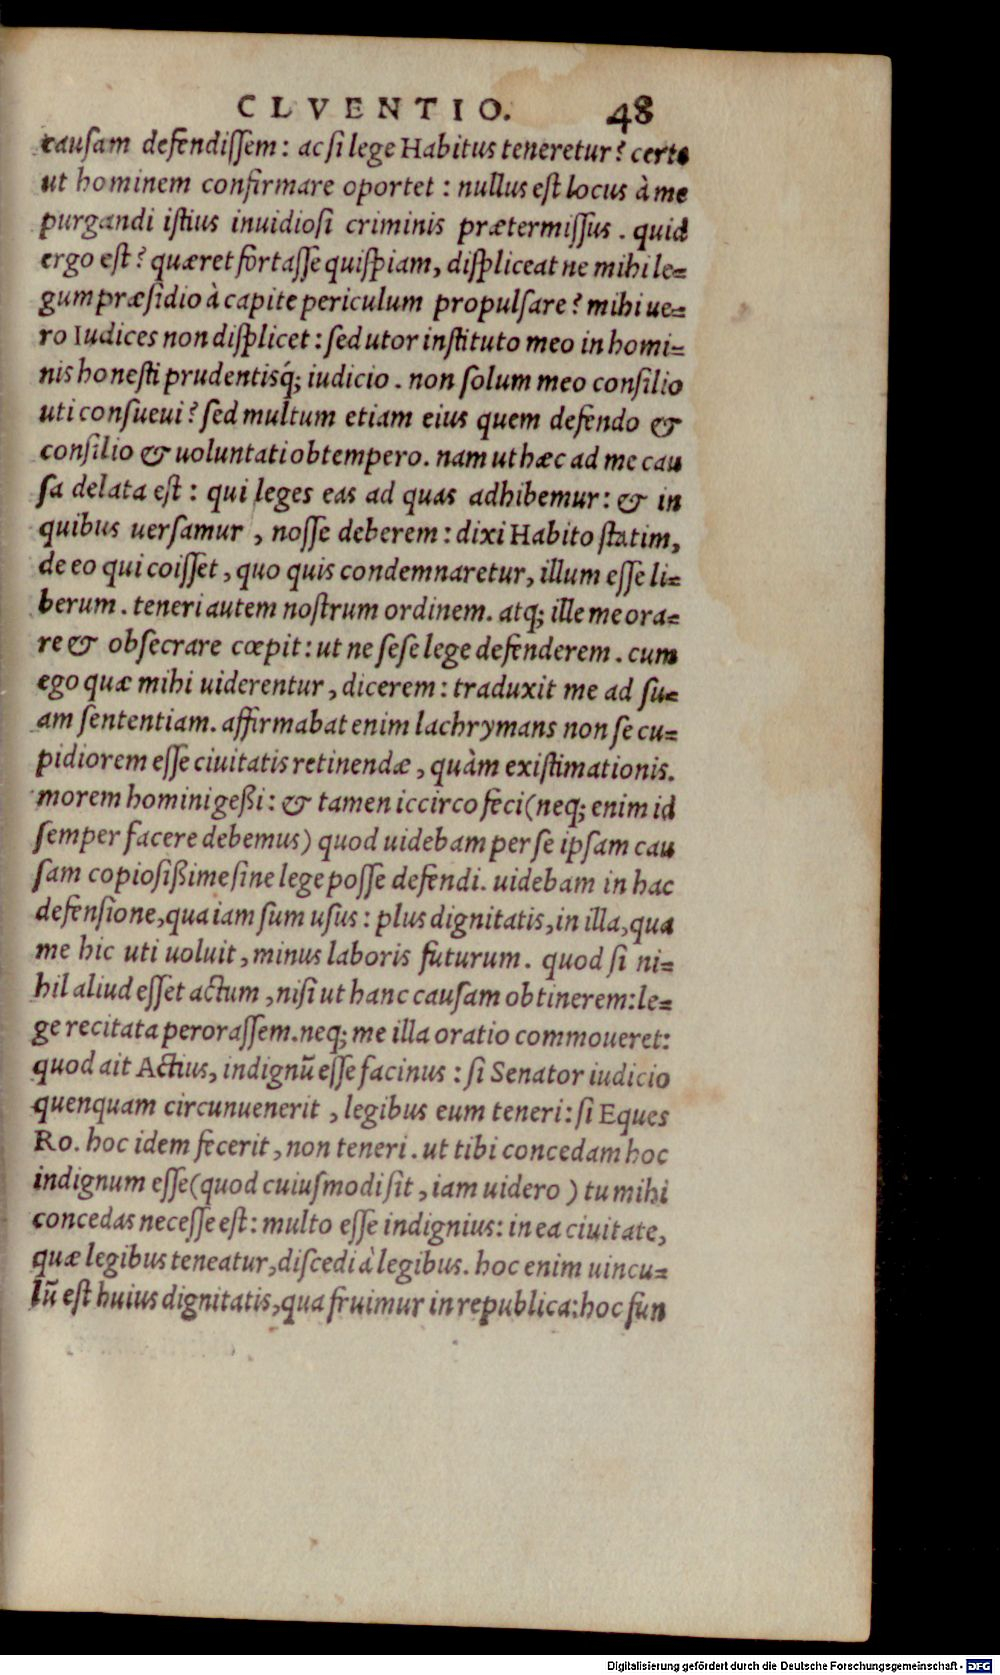 CLVENTIO. 48
causam defendissem: ac si lege Habitus teneretur? certe
ut hominem confirmare oportet: nullus est locus à me
purgandi istius inuidiosi criminis prætermissus. quid
ergo est? quæret fortasse quispiam, displiceat ne mihi le=
gum præsidio à capite periculum propulsare? mihi ue=
ro Iudices non displicet: sed utor instituto meo in homi=
nis honesti prudentisq́; iudicio. non solum meo consilio
uti consueui? sed multum etiam eius quem defendo &
consilio & uoluntati obtempero. nam ut hæc ad me cau
sa delata est: qui leges eas ad quas adhibemur: & in
quibus uersamur, nosse deberem: dixi Habito statim,
de eo qui coisset, quo quis condemnaretur, illum esse li=
berum. teneri autem nostrum ordinem. atq; ille me ora=
re & obsecrare cœpit: ut ne sese lege defenderem. cum
ego quæ mihi uiderentur, dicerem: traduxit me ad su=
am sententiam. affirmabat enim lachrymans non se cu=
pidiorem esse ciuitatis retinendæ, quàm existimationis.
morem homini geßi: & tamen iccirco feci (neq; enim id
semper facere debemus) quod uidebam per se ipsam cau
sam copiosißime sine lege posse defendi. uidebam in hac
defensione, qua iam sum usus: plus dignitatis, in illa, qua
me hic uti uoluit, minus laboris futurum. quod si ni=
hil aliud esset actum, nisi ut hanc causam obtinerem: le=
ge recitata perorassem. neq; me illa oratio commoueret:
quod ait Actius, indignũ esse facinus: si Senator iudicio
quenquam circunuenerit, legibus eum teneri: si Eques
Ro. hoc idem fecerit, non teneri. ut tibi concedam hoc
indignum esse (quod cuiusmodi sit, iam uidero) tu mihi
concedas necesse est: multo esse indignius: in ea ciuitate,
quæ legibus teneatur, discedi à legibus. hoc enim uincu=
lũ est huius dignitatis, qua fruimur in republica: hoc fun
Digitalisierung gefördert durch die Deutsche Forschungsgemeinschaft - DFG